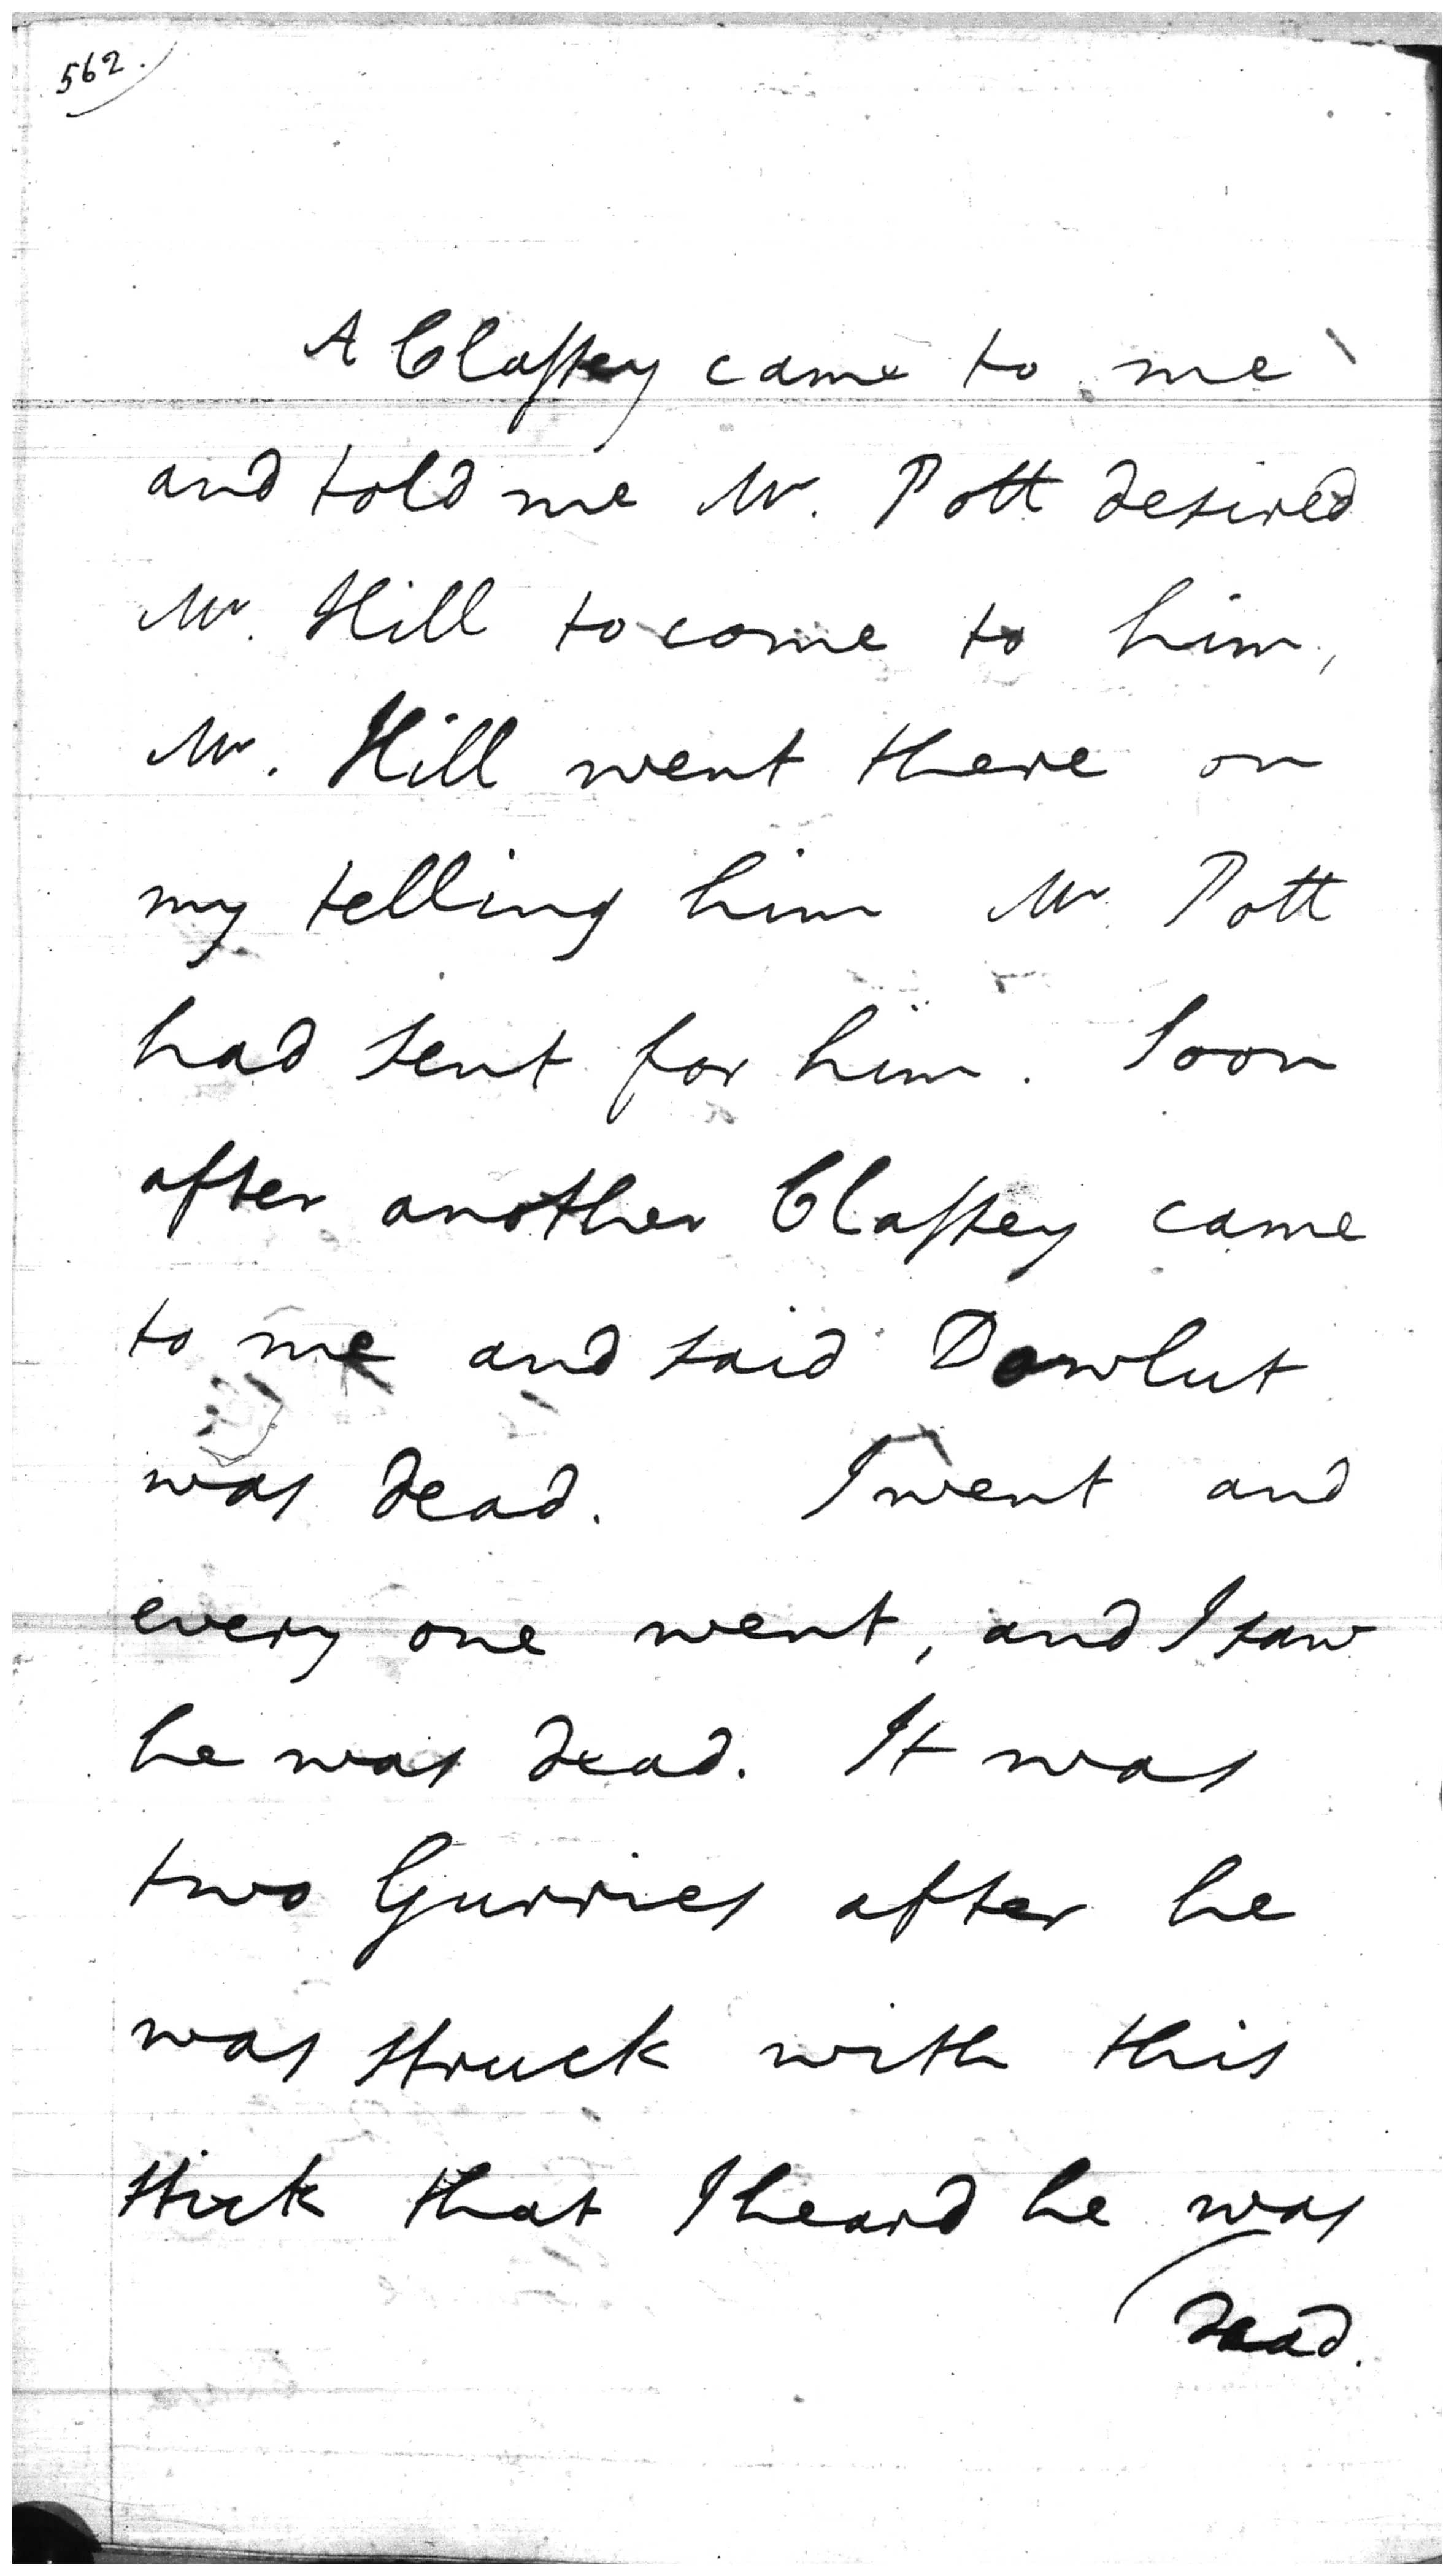 562.
A Classey came to me
and told me Mr. Pott desired
Mr. Hill to come to him,
Mr. Hill went there on
my telling him Mr. Pott
had sent for him. Soon
after another Classey came
to me and said Dowlut
was dead. I went and
every one went, and I saw
he was dead. It was
two Gurries after he
was struck with this
stick that I heard he was
dead.